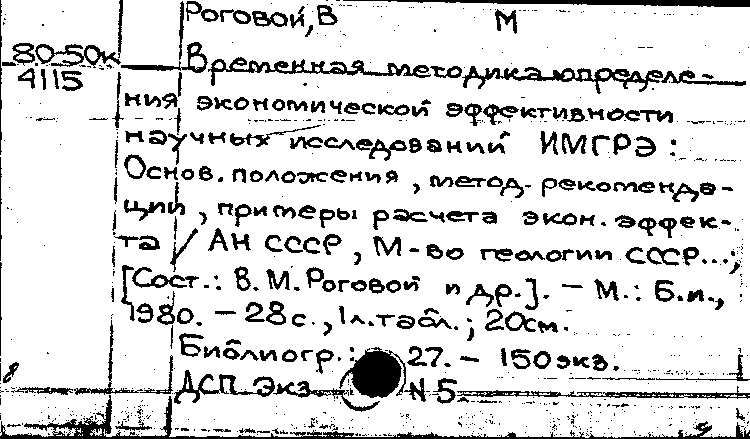 Роговой, В М
80-50к
4115
Временная методика определе-
ния экономической эффективности
научных исследований ИМГРЭ:
Основ. положения, метод. рекоменда-
ции, примеры расчета экон. эффек-
та / АН СССР, М-во геологии СССР...;
[Сост.: В. М. Роговой и др.]. – М.: Б.и.,
1980. – 28с., 1л.табл.; 20см.
Библиогр.: 27. – 150экз.
8
ДСП Экз N 5.